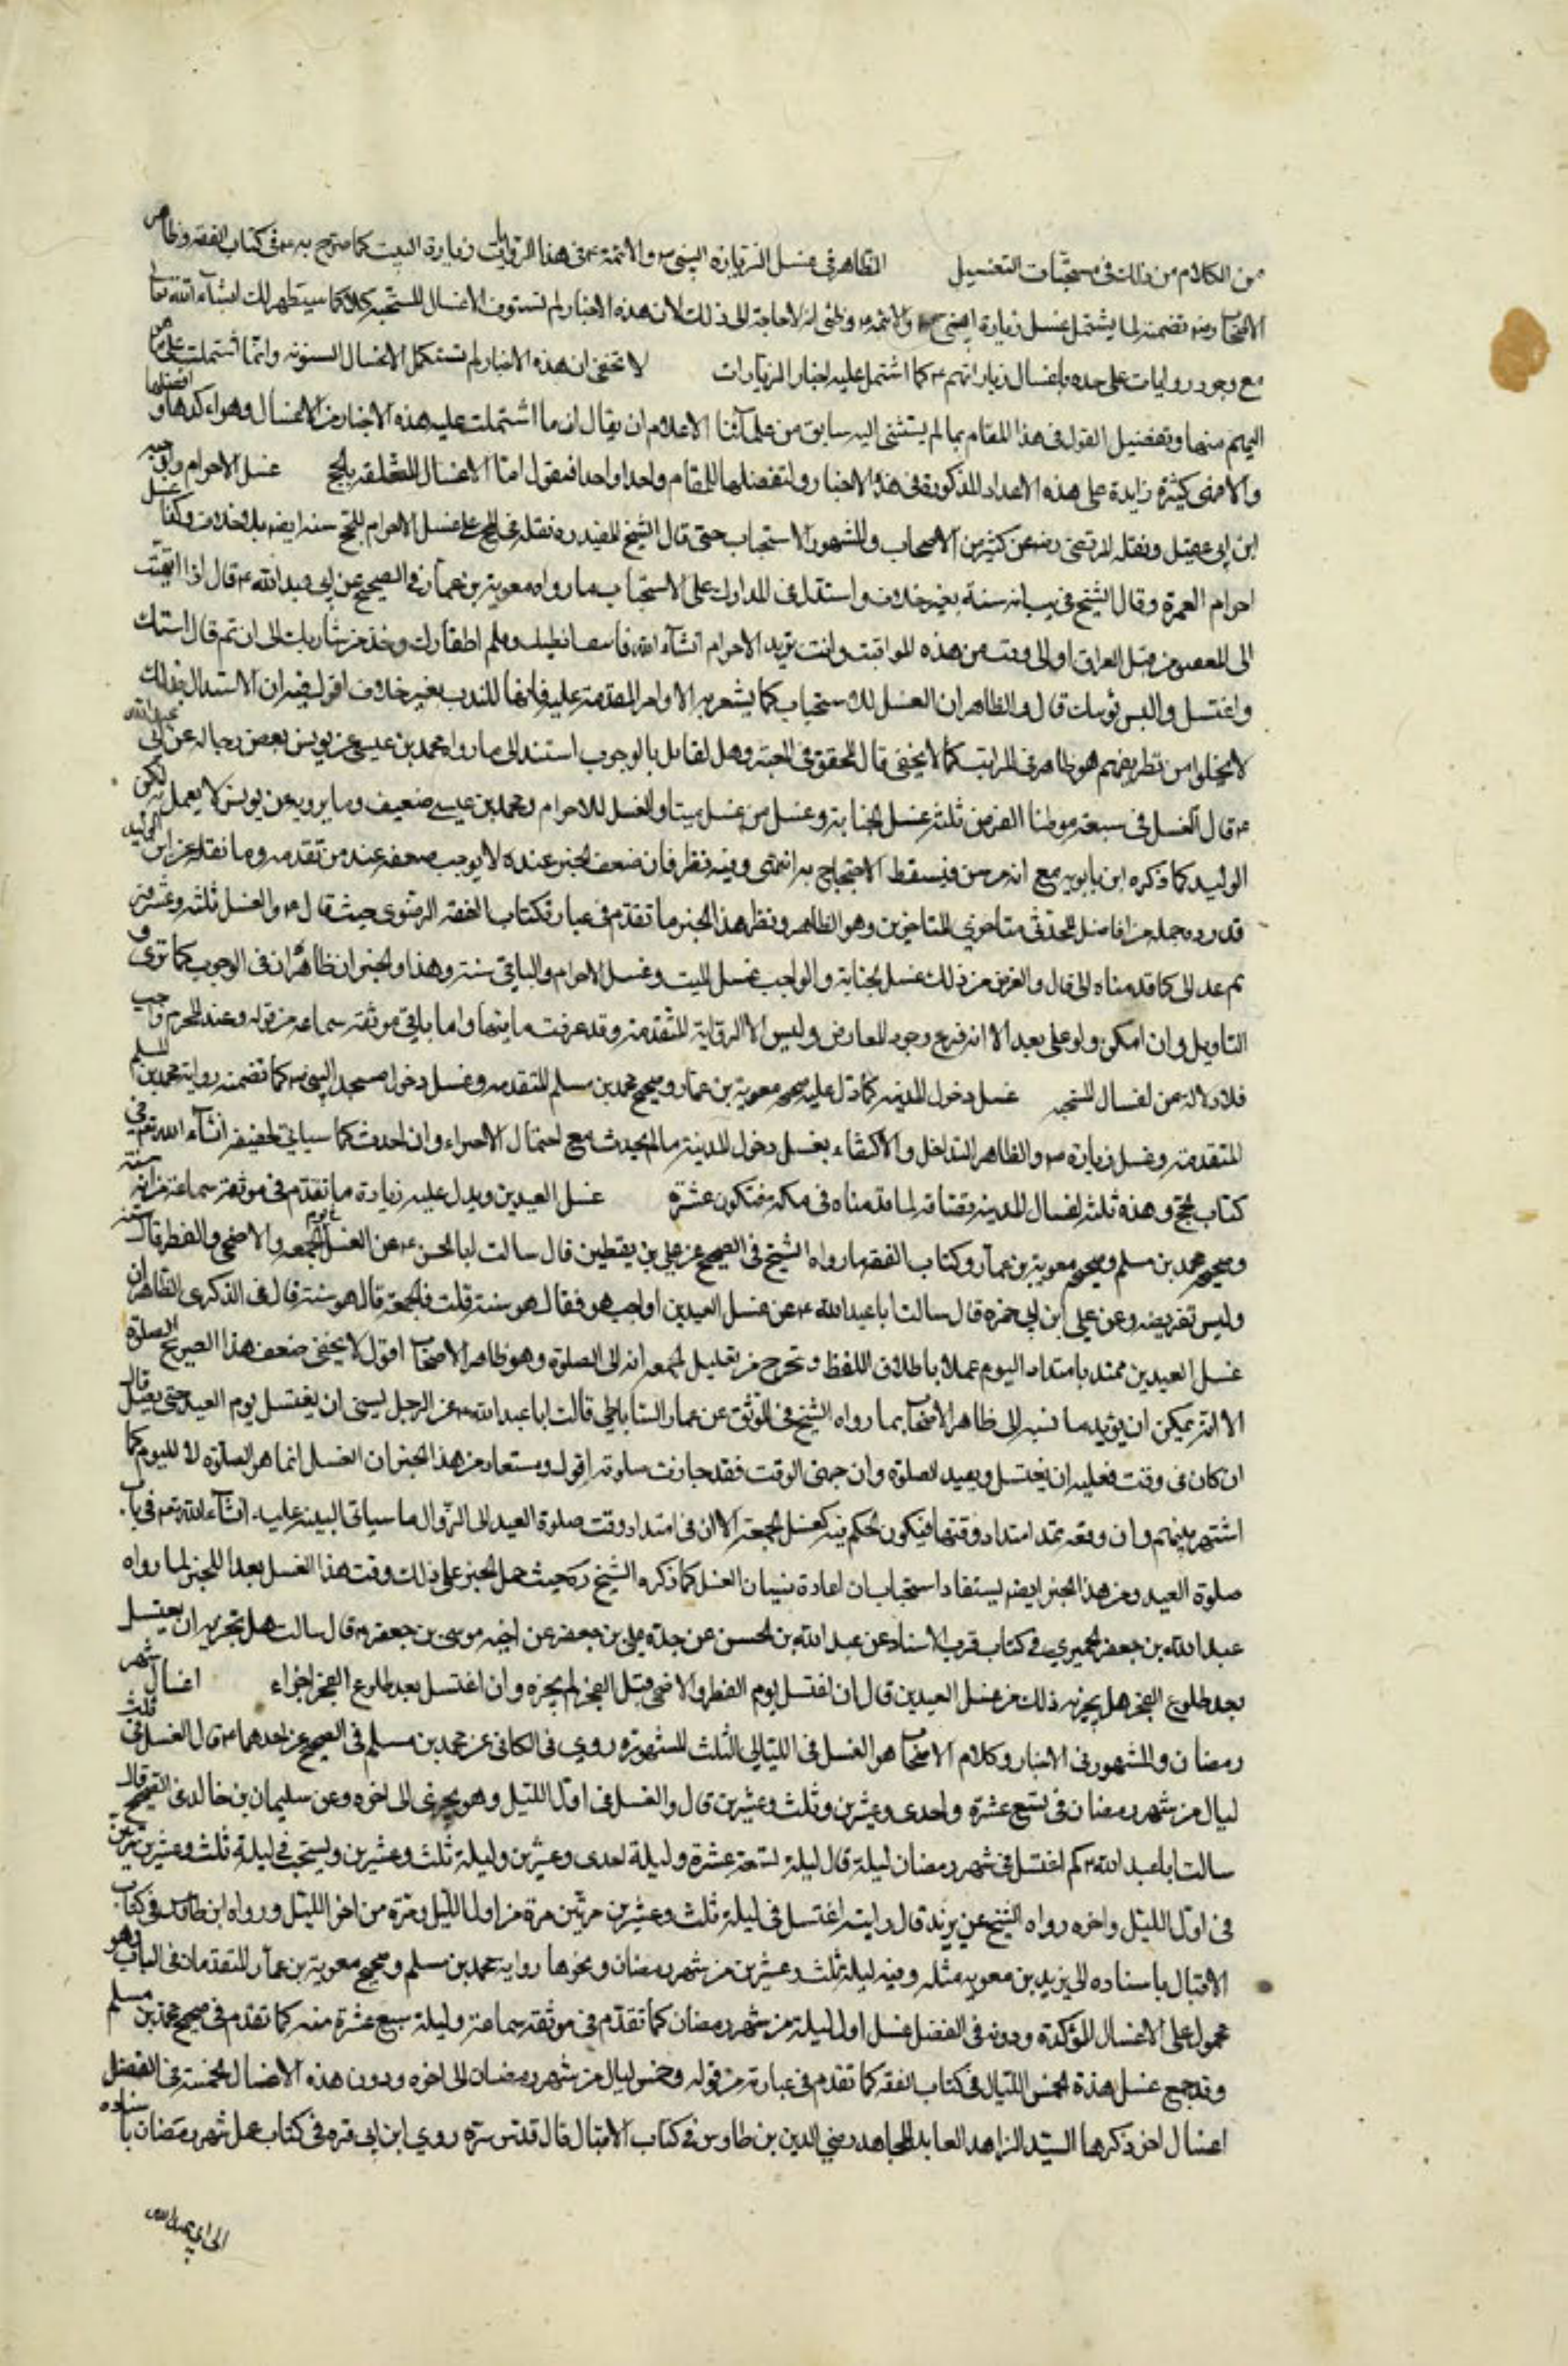 من الكلام من ذلك في مستحبات التغسيل الظاهر في غسل الزيارة النبي ص والائمة ع في هذا الروايات زيارة البيت كما صرح به ع في كتاب الفقه وظاهر
الاصحاب رضه تضمنه لما يشتمل غسل زيارة النبي ص والائمة ع وظني انه لا حاجة الى ذلك لان هذه الاخبار لم تستوف الاغسال المستحبه كلا كما سيظهر لك انشاء الله تعالى
مع وجود روايات على حده باغسال زياراتهم ع كما اشتمل عليه اخبار الزيارات لا تخفى ان هذه الاخبار لم تستكمل الاغسال المسنونه وانما اشتملت على
المهم منها وتفصيل القول في هذا المقام بما لم يستثنى اليه سابق من علمائنا الاعلام ان يقال ان ما اشتملت عليه هذه الاخبار من الاغسال وهو اكدها وافضلها
والا فهي كثيرة زايدة على هذه الاعداد المذكورة في هذه الاخبار ولنفصلها للمقام واحدا واحدا فنقول اما الاغسال المتعلقه بالحج غسل الاحرام واوجبه
ابن ابي عقيل ونقله المرتضى رضه عن كثير من الاصحاب والمشهور الاستحباب حتى قال الشيخ المفيد ره فنقله عنه غسل الاحرام للحج سنه ايضه بلا خلاف وكذا غسل
احرام العمرة وقال الشيخ في بيانه سنة بغير خلاف واستدل في المدارك على الاستحباب بما رواه معوية بن عمار في الصحيح عن ابي عبد الله ع قال اذا انتهيت
الى العقيق من قبل العراق او الى وقت من هذه المواقيت وانت تريد الاحرام انشاء الله فانتف ابطيك وقلم اظفارك وخذ من شاربك الى ان ثم قال استك
واغتسل والبس ثوبيك قال والظاهر ان الغسل للاستحباب كما يشعر به الاوامر المتقدمة عليه فانها للندب بغير خلاف اقول فيه ان الاستدلال بذلك
لا يخلو من نظر بعضهم هو ظاهر في المراتب كما لا يخفى قال المحقق في المعتبر وهل لقايل بالوجوب استند الى ما رواه محمد بن عيسى عن يونس بعض رجاله عن ابي عبد الله
ع قال الغسل في سبعة عشر موطنا الفرض ثلثه غسل الجنابة وغسل من غسل ميتا والغسل للاحرام ومحمد بن عيسى ضعيف وما يرويه عن يونس لا يعمل به ابن
الوليد كما ذكره ابن بابويه مع انه مرسل فيسقط الاحتجاج به انتهى وفيه نظر فان ضعف الخبر عنده لا يوجب ضعفه عند من تقدمه وما نقله عن ابن الوليد
قد رده جمله من افاضل محدثي متاخري المتاخرين وهو الظاهر ونظر هذا الخبر ما تقدم في عبارة كتاب الفقه الرضوي حيث قال ع والغسل ثلثه وعشرون
ثم عد الى كما قدمناه الى قال والفرض من ذلك غسل الجنابة والواجب غسل الميت وغسل الاحرام والباقي سنة وهذا والخبر ان ظاهران في الوجوب كما ترى و
التاويل وان امكن ولو على بعد الا انه فرع وجود المعارض وليس الا الرواية المتقدمة وقد عرفت ما فيها واما باقي موثقة سماعه من قوله وعند المحرم واجب
فلا دلاله من اغسال المستحبه غسل دخول المدينه كما دل عليه صحيحه معوية بن عمار وصحيح محمد بن مسلم المتقدمه وغسل دخول مسجد النبي ص كما تضمنه رواية محمد بن مسلم
المتقدمة وغسل زيارة ص والظاهر التداخل والاكتفاء بغسل دخول المدينة ما لم يحدث مع احتمال الاجزاء وان احدث كما سياتي تحقيقه انشاء الله تعم في
كتاب الحج وهذه ثلثه اغسال المدينه تضاف لما قدمناه في مكه فتكون عشرة غسل العيدين ويدل عليه زيادة ما تقدم في موثقة سماعة من انه سنة
وصحيحه محمد بن مسلم وصحيحه معوية بن عمار وكتاب الفقه ما رواه الشيخ في الصحيح عن علي بن يقطين قال سالت ابا الحسن ع عن الغسل يوم الجمعه والاضحى والفطر قال سنه
وليس بفريضه وعن علي ابن ابي حمزه قال سالت ابا عبد الله ع عن غسل العيدين اواجب هو فقال هو سنة قلت فالجمعة قال هو سنة قال في الذكرى الظاهر ان
غسل العيدين ممتد بامتداد اليوم عملا باطلاق اللفظ وتخرج من تعليل الجمعه انه الى الصلوة وهو ظاهر الاصحاب اقول لا يخفى ضعف هذا التخريج
الا انه يمكن ان يؤيد ما نسبه الى ظاهر الاصحاب بما رواه الشيخ في الموثق عن عمار الساباطي قال سالت ابا عبد الله ع عن الرجل ينسى ان يغتسل يوم العيد حتى يصلي قال
ان كان في وقت فعليه ان يغتسل ويعيد الصلوة وان مضى الوقت فقد جازت صلوته اقول ويستفاد من هذا الخبر ان الغسل انما هو للصلوة لا لليوم كما
اشتهر بينهم وان وقته يمتد امتداد وقتها فيكون الحكم فيه كغسل الجمعة الا ان في امتداد وقت صلوة العيد الى الزوال ما سياتي البينه عليه انشاء الله تعم في باب
صلوة العيد ومن هذا الخبر ايضه يستفاد استحباب ان اعادة بنسيان الغسل كما ذكره الشيخ ره حيث حمل الخبر على ذلك وقت هذا الغسل بعد الفجر لما رواه
عبد الله بن جعفر الحميري في كتاب قرب الاسناد عن عبد الله بن الحسن عن جده علي بن جعفر عن اخيه موسى بن جعفر ع قال سالت هل يجزيه ان يغتسل
بعد طلوع الفجر هل يجزيه ذلك من غسل العيدين قال ان اغتسل يوم الفطر والاضحى قبل الفجر لم يجزه وان اغتسل بعد طلوع الفجر اجزاه اغسال شهر
رمضان والمشهور في الاخبار وكلام الاصحاب هو الغسل في الليالي الثلث المشهورة روي في الكافي عن محمد بن مسلم في الصحيح عن احدهما ع قال الغسل في ثلث
ليال من شهر رمضان في تسع عشرة واحدى وعشرين وثلث وعشرين قال والغسل في اول الليل وهو يجزي الى اخره وعن سليمان بن خالد في الصحيح قال
سالت ابا عبد الله ع كم اغتسل في شهر رمضان ليلة قال ليلة تسعة عشرة وليلة احدى وعشرين وليلة ثلث وعشرين ويستحب في ليلة ثلث وعشرين مرتين
في اول الليل واخره رواه الشيخ عن بريد قال رايته اغتسل في ليلة ثلث وعشرين مرتين مرة من اول الليل ومرة من اخر الليل ورواه ابن طاوس في كتاب
الاقبال باسناده الى بريد بن معويه مثله وفيه ليلة ثلث وعشرين من شهر رمضان ونحوها رواية محمد بن مسلم وصحيح معوية بن عمار المتقدمان في الباب وهو
محمول على الاغسال المؤكدة ودونه في الفضل غسل اول ليلة من شهر رمضان كما تقدم في موثقه سماعة وليلة سبع عشرة منه كما تقدم في صحيح محمد بن مسلم
وقد جمع غسل هذة الخمس الليال في كتاب الفقه كما تقدم في عبارته من قوله وخمس ليال من شهر رمضان الى اخره ودون هذه الاغسال الخمسة في الفضل
اغسال اخر ذكرها السيد الزاهد العابد المجاهد رضي الدين بن طاوس في كتاب الاقبال قال قدس سره روي ابن ابي قره في كتاب عمل شهر رمضان باسناده
الى ابي عبد الله